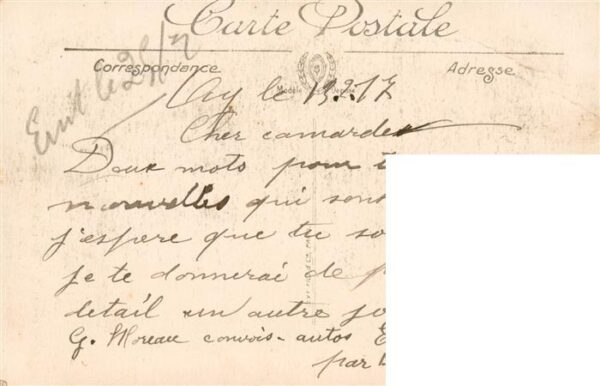 Carte Postale
Correspondance
Adresse
Modèle déposé
Ay le 13.2.17
Ecrit le 25/2/17
Cher camardes
Deux mots pour
nouvelles qui sont
j'espere que tu
je te donnerai de
detail un autre
G. Moreau convois-autos
par